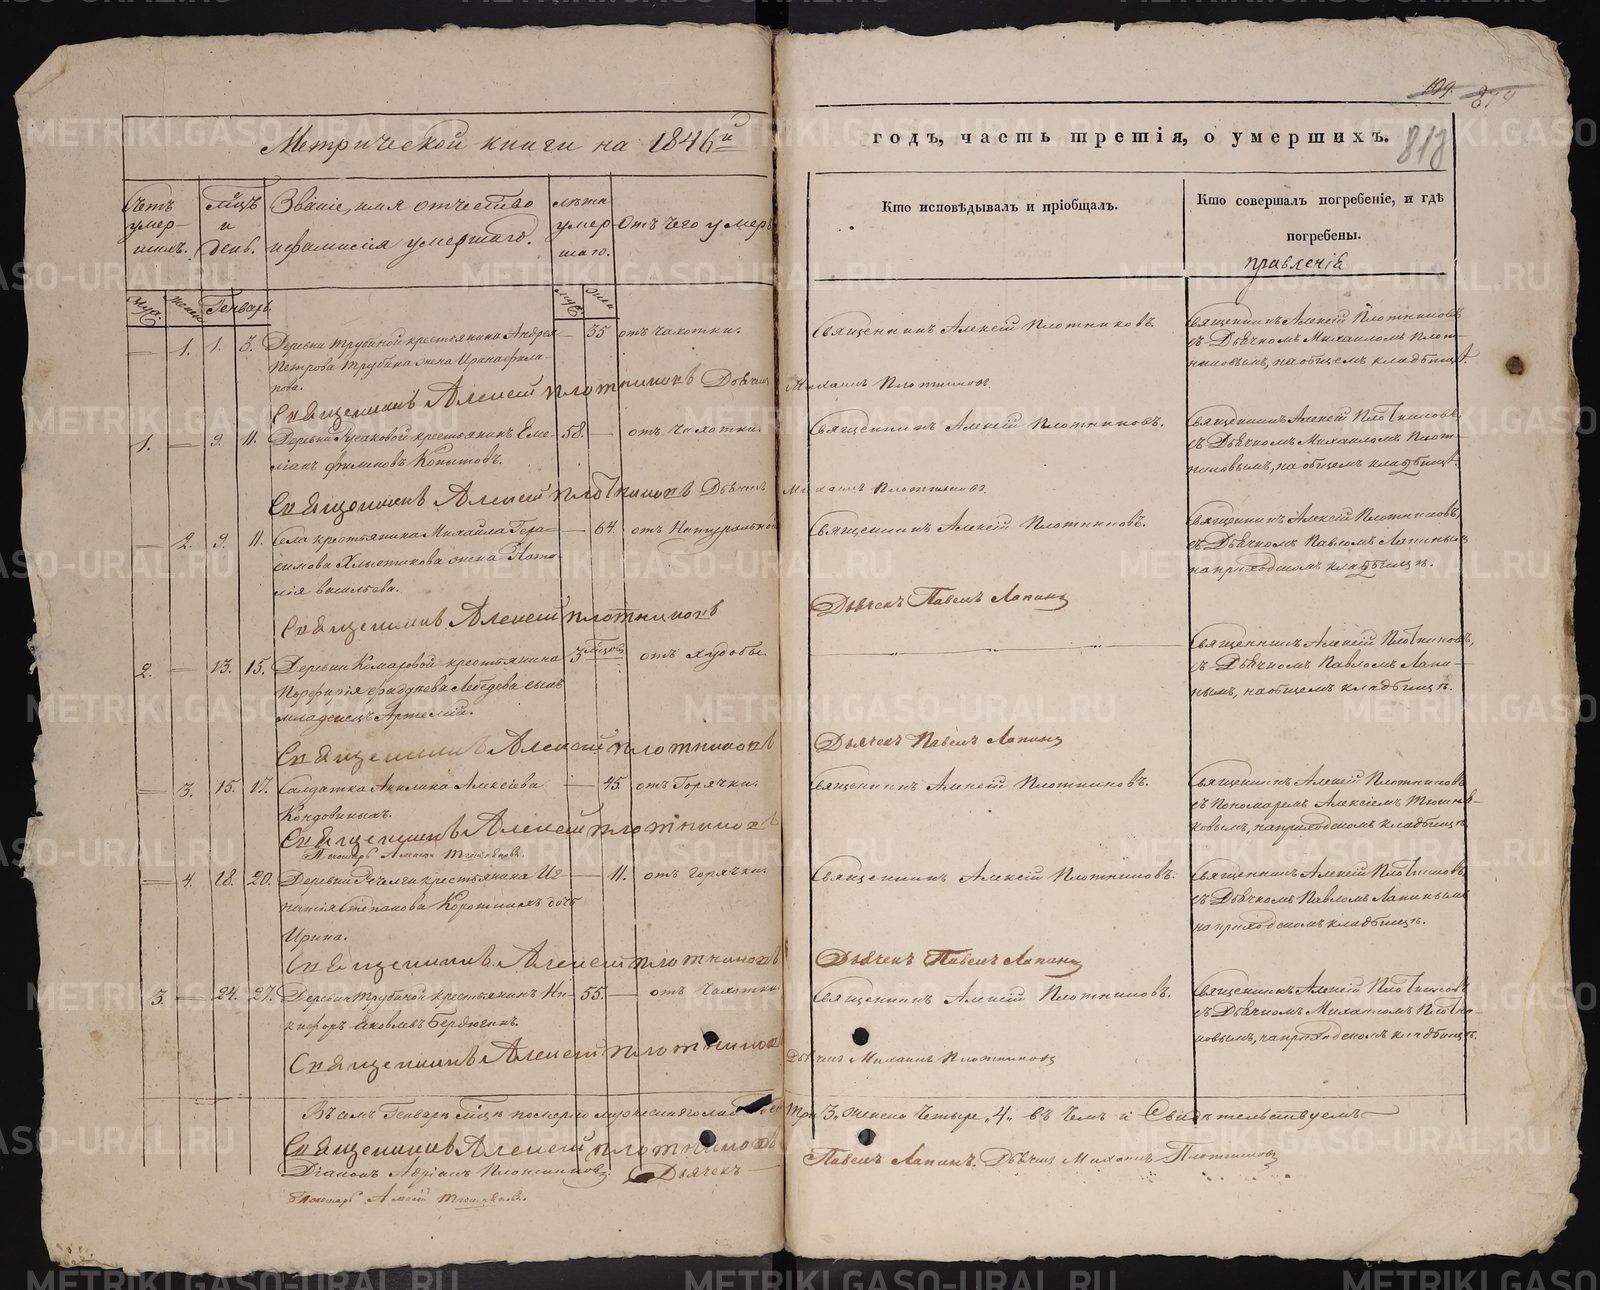 109. 874
818
Метрической книги на 1846й
годъ, часть третія, о умершихъ.
Четъ умерших.
Мцъ и день.
Званіе, имя отчество и фамилія умершаго.
Лѣта умершаго.
Отъ чего умеръ
Кто исповѣдывалъ и пріобщалъ.
Кто совершалъ погребеніе, и гдѣ
погребены.
Муж.
Женск.
Генварь
1. 1. 3. Деревни Трубиной крестьянина Андрея
Петрова Трубина жена Ирина Фили-
пова.
35 отъ чахотки.
Священникъ Алексій Плотниковъ.
Священникъ Алексій Плотниковъ
съ Дьячкомъ Михаиломъ Плот-
никовымъ, на общемъ кладбищѣ.
Священникъ Алексей Плотников Дьячекъ Михаилъ Плотниковъ
1. 9. 11. крестьянинъ Еме-
58. отъ чахотки.
Священникъ Алексій Плотниковъ.
Священникъ Алексій Плотниковъ
съ Дьячкомъ Михаиломъ Плот-
никовымъ, на общемъ кладбищѣ.
Священникъ Алексей Плотников Дьячекъ Михаилъ Плотниковъ
2. 9. 11. Села крестьянина Михайла Гера-
симова Хлыстикова жена Ната-
лія Васильева.
64. отъ
Священникъ Алексій Плотниковъ.
Священникъ Алексій Плотниковъ,
съ Дьячкомъ Павломъ Лапинымъ
на приходскомъ кладбищѣ.
Священникъ Алексей Плотников
Дьячекъ Павелъ Лапинъ
2. 13. 15. Деревни Комаровой крестьянина
Порфирія Фаддѣева Лебедева сынъ
младенецъ Артемій.
3 мцовъ отъ худобы.
Священникъ Алексій Плотниковъ,
съ Дьячкомъ Павломъ Лапи-
нымъ, на общемъ кладбищѣ.
Священникъ Алексей Плотников
Дьячекъ Павелъ Лапинъ
3. 15. 17. Салдатка Акилина Алексѣева
45. отъ Горячки.
Священникъ Алексій Плотниковъ.
Священникъ Алексій Плотниковъ
съ Пономаремъ Алексіемъ
на приходскомъ кладбищѣ
Священникъ Алексей Плотников
4. 18. 20. Деревни крестьянина Иг-
натія Степанова Короткихъ дочь
Ирина.
11. отъ горячки.
Священникъ Алексій Плотниковъ.
Священникъ Алексій Плотниковъ,
съ Дьячкомъ Павломъ Лапинымъ
на приходскомъ кладбищѣ.
Священникъ Алексей Плотников
Дьячекъ Павелъ Лапинъ
3. 24. 27. Деревни Трубиной крестьянинъ Ни-
кифоръ Яковлевъ Бердюгинъ.
55. отъ чахотки
Священникъ Алексій Плотниковъ.
Священникъ Алексій Плотниковъ
съ Дьячкомъ Михаиломъ Плотни-
ковымъ, на приходскомъ кладбищѣ.
Священникъ Алексей Плотников
Дьячекъ Михаилъ Плотниковъ
Въ семъ Генварѣ мцѣ померло мужеска пола три „3„ женска четыре „4„ въ чемъ и Свидѣтельствуемъ
Священникъ Алексей Плотников
Діаконъ Адріанъ Плотниковъ Дьячекъ Павелъ Лапинъ. Дьячекъ Михаилъ Плотниковъ
METRIKI.GASO-URAL.RU